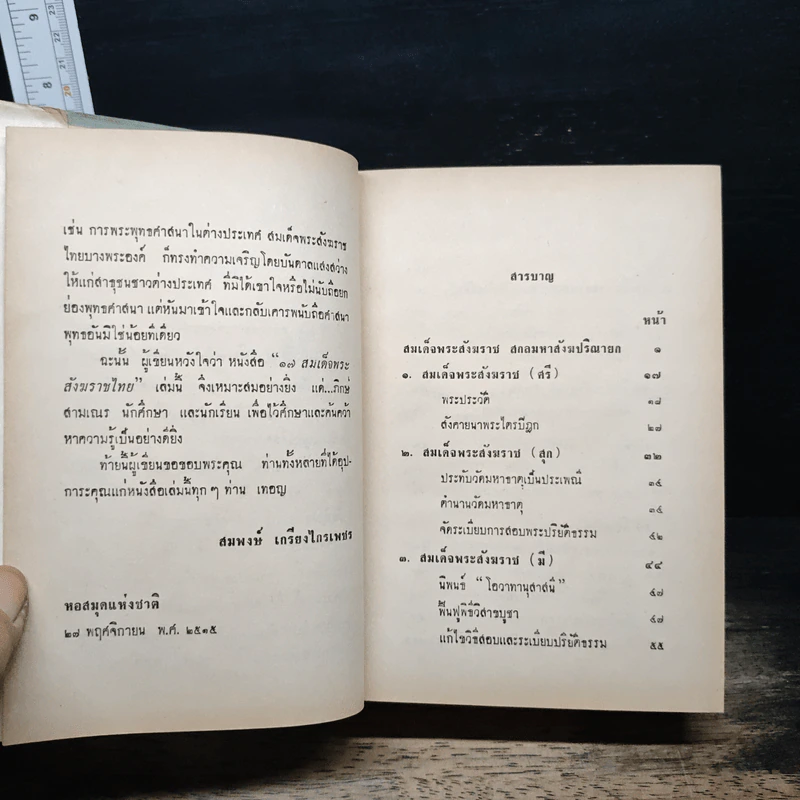 เช่น การพระพุทธศาสนาในต่างประเทศ สมเด็จพระสังฆราช
ไทยบางพระองค์ ก็ทรงทำความเจริญโดยบันดาลแสงสว่าง
ให้แก่สาธุชนชาวต่างประเทศ ที่มิได้เขาใจหรือไม่นับถือยก
ย่องพุทธศาสนา แต่หันมาเข้าใจและกลับเคารพนับถือศาสนา
พุทธอันมิใช่น้อยทีเดียว
ฉะนั้น ผู้เขียนหวังใจว่า หนังสือ “๑๗ สมเด็จพระ
สังฆราชไทย” เล่มนี้ จึงเหมาะสมอย่างยิ่ง แด่...ภิกษุ
สามเณร นักศึกษา และนักเรียน เพื่อไว้ศึกษาและค้นคว้า
หาความรู้เป็นอย่างดียิ่ง
ท้ายนี้ผู้เขียนขอขอบพระคุณ ท่านทั้งหลายที่ได้อุป-
การะคุณแก่หนังสือเล่มนี้ทุก ๆ ท่าน เทอญ
สมพงษ์ เกรียงไกรเพชร
หอสมุดแห่งชาติ
๒๗ พฤศจิกายน พ.ศ. ๒๕๑๕
สารบาญ
หน้า
สมเด็จพระสังฆราช สกลมหาสังฆปริณายก ๑
๑. สมเด็จพระสังฆราช (ศรี) ๑๗
พระประวัติ ๑๘
สังคายนาพระไตรปิฎก ๒๗
๒. สมเด็จพระสังฆราช (สุก) ๓๒
ประทับวัดมหาธาตุเป็นประเพณี ๓๕
ตำนานวัดมหาธาตุ ๓๕
จัดระเบียบการสอบพระปริยัติธรรม ๔๒
๓. สมเด็จพระสังฆราช (มี) ๔๔
นิพนธ์ “โอวาทานุสาสนี” ๔๗
ฟื้นฟูพิธีวิสาขบูชา ๔๗
แก้ไขวิธีสอบและระเบียบปริยัติธรรม ๕๕
9
8
23
22
21
20